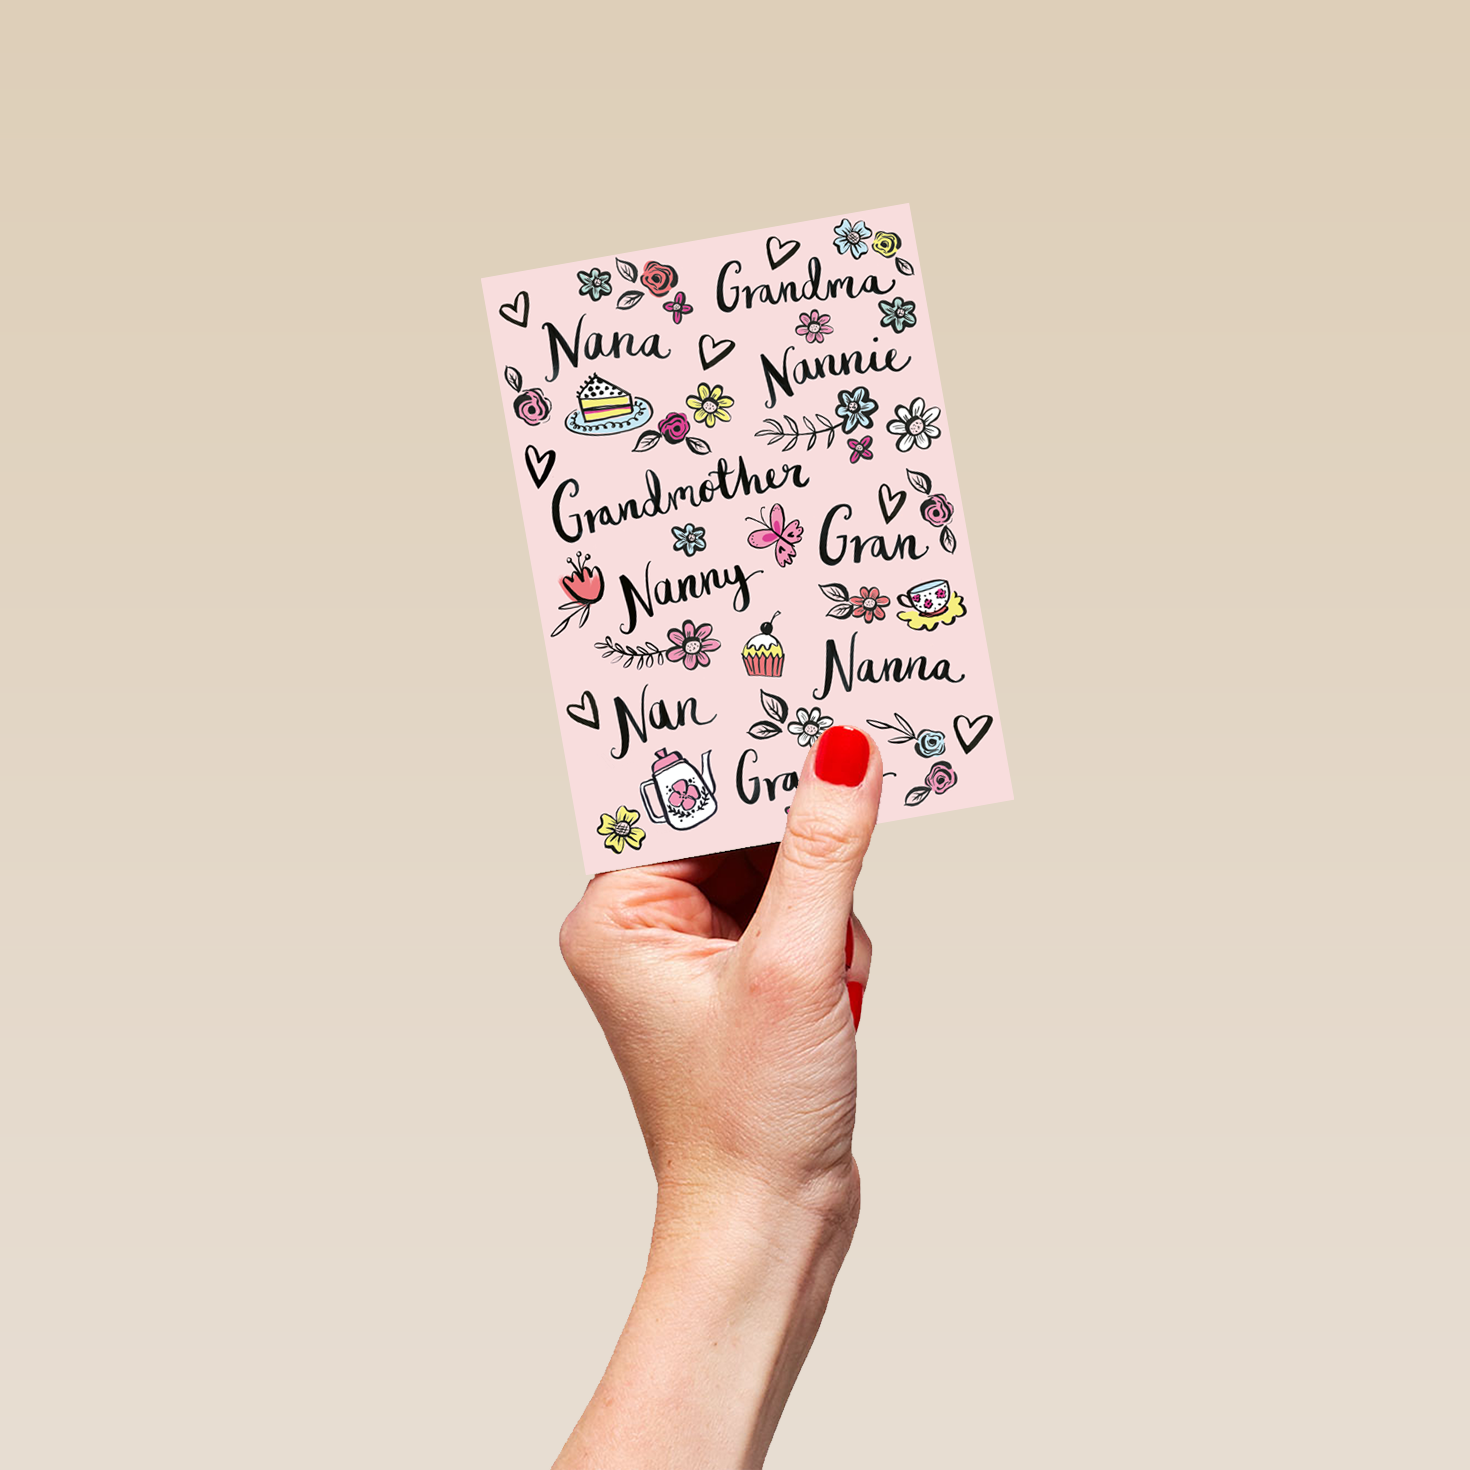 Grandma
Nana
Nannie
Grandmother
Gran
Nanny
Nanna
Nan